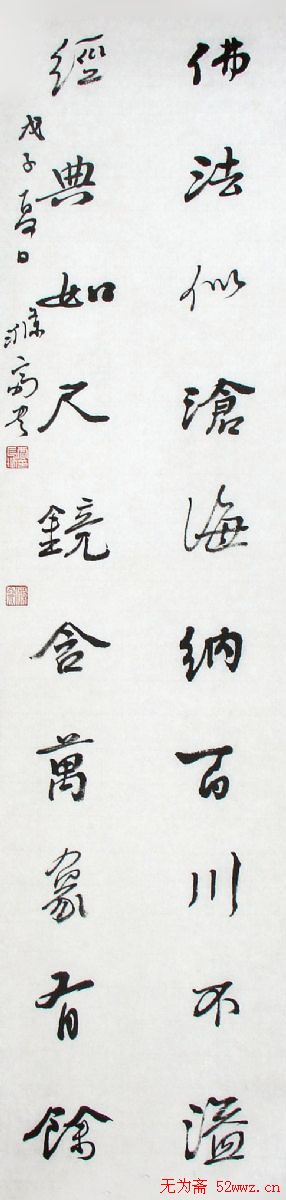 佛法似滄海納百川不溢
經典如尺鏡含萬象有餘
戊子夏日
无为斋 52wwz.cn